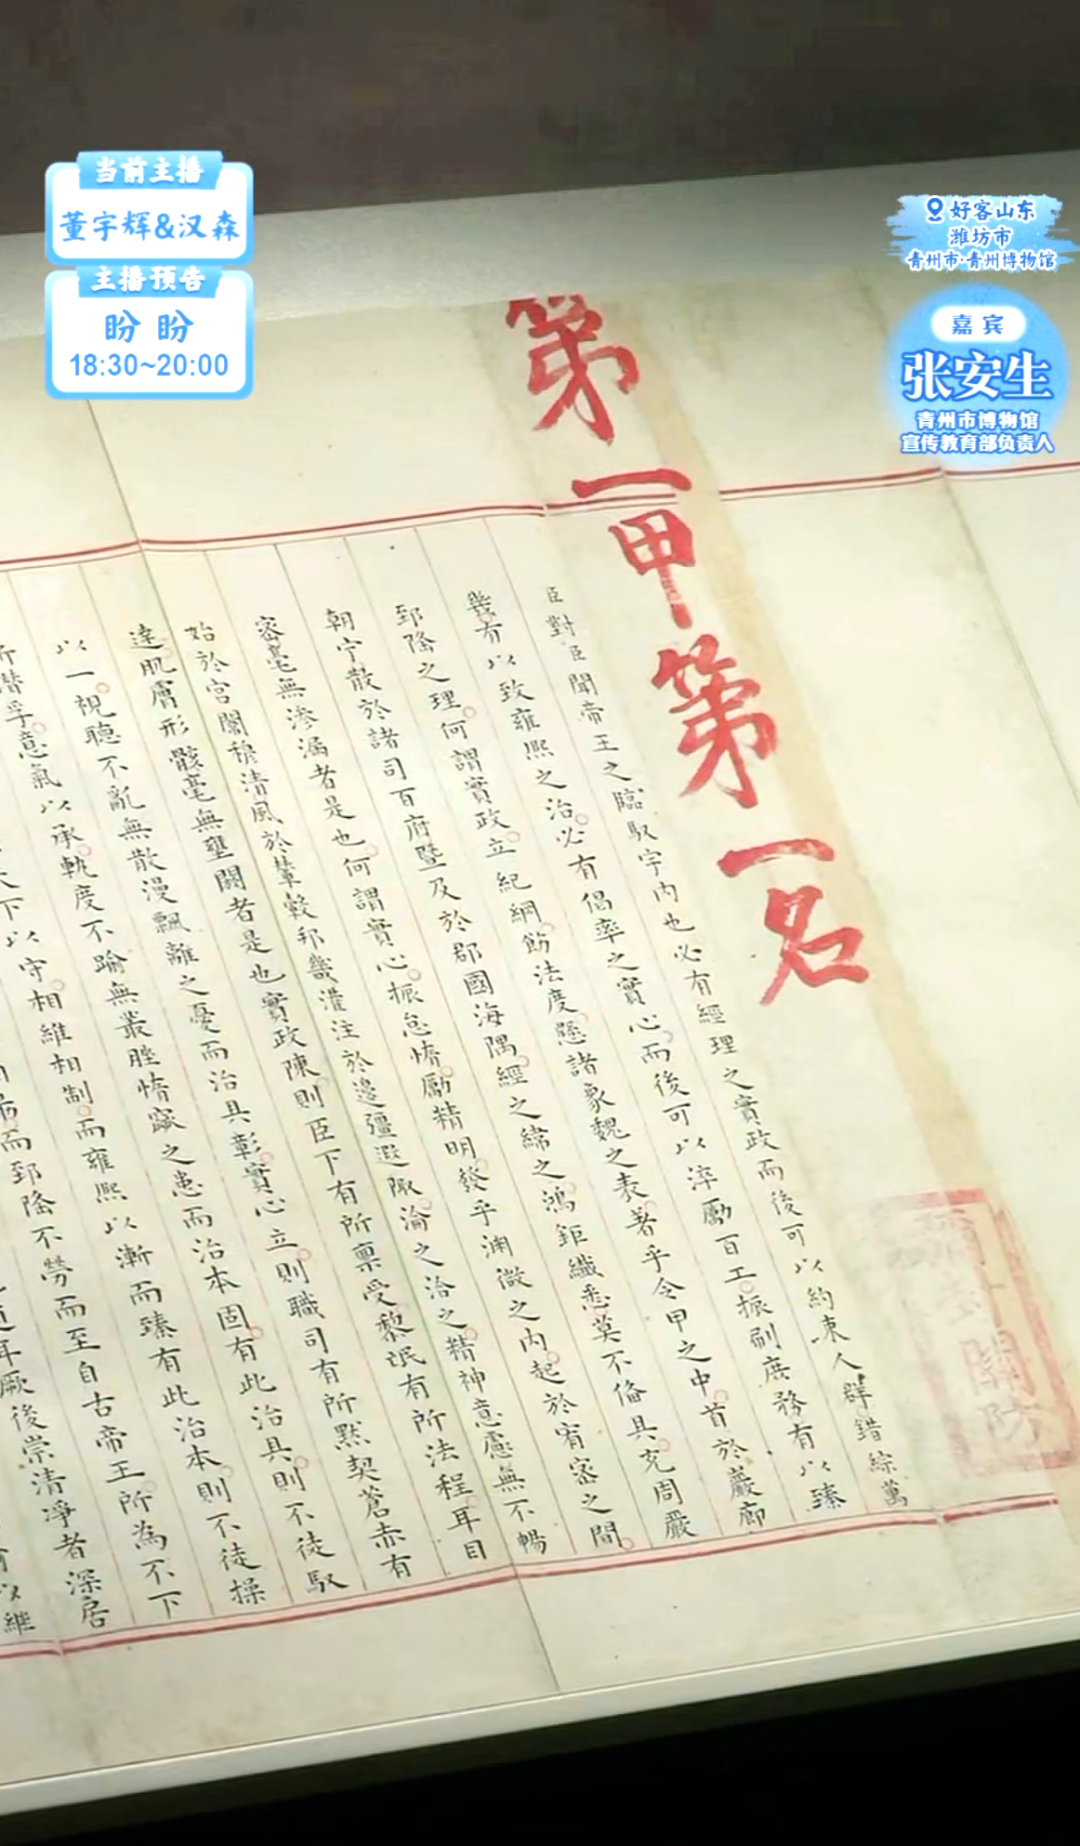 当前主播
董宇辉&汉森
主播预告
盼盼
18:30~20:00
好客山东
潍坊市
青州市·青州博物馆
嘉宾
张安生
青州市博物馆
宣传教育部负责人
第一甲第一名
臣對臣聞帝王之臨馭宇內也必有經理之實政而後可以約束人群錯綜萬
幾有以致雍熙之治必有倡率之實心而後可以淬勵百工振刷庶務有以臻
郅隆之理何謂實政立紀綱飭法度懸諸象魏之表著乎令甲之中首於巖廊
朝宁散於諸司百府暨及於郡國海隅經之緯之鴻鉅纖悉莫不備具充周嚴
密毫無滲漏者是也何謂實心振怠惰勵精明發乎淵微之內起於宥密之間
始於宮闈穆清風於輦轂邦畿灌注於邊疆遐陬淪之洽之精神意慮無不暢
達肌膚形骸毫無壅閼者是也實政陳則臣下有所稟受黎氓有所法程耳目
以一視聽不亂無散漫飄離之憂而治具彰實心立則職司有所默契蒼赤有
所潛孚意氣以承軌度不踰無叢脞惰窳之患而治本固有此治具則不徒馭
天下以守相維相制而雍熙以漸而臻有此治本則不徒操
而郅隆不勞而至自古帝王所為不下
年厥後崇清淨者深居
以維
關防